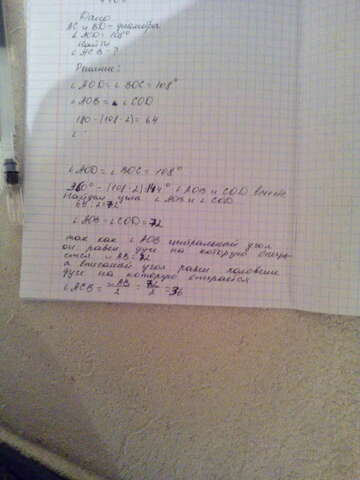 Дано
AC и BD - диаметры
∠AOD = 108°
Найти
∠ACB - ?
Решение:
∠AOD = ∠BOC = 108°
∠AOB = ∠COD
180 - (108·2) = 64
∠
∠AOD = ∠BOC = 108°
360° - (108·2) 144° ∠AOB и COD вместе
Найдем угла ∠AOB и ∠COD
∠AOB = ∠COD = 72
так как ∠AOB центральный угол
он равен дуге на которую опира-
ется и AB = 72
а вписаный угол равен половине
дуге на которую опирается
∠ACB = AB/2 = 72/2 = 36